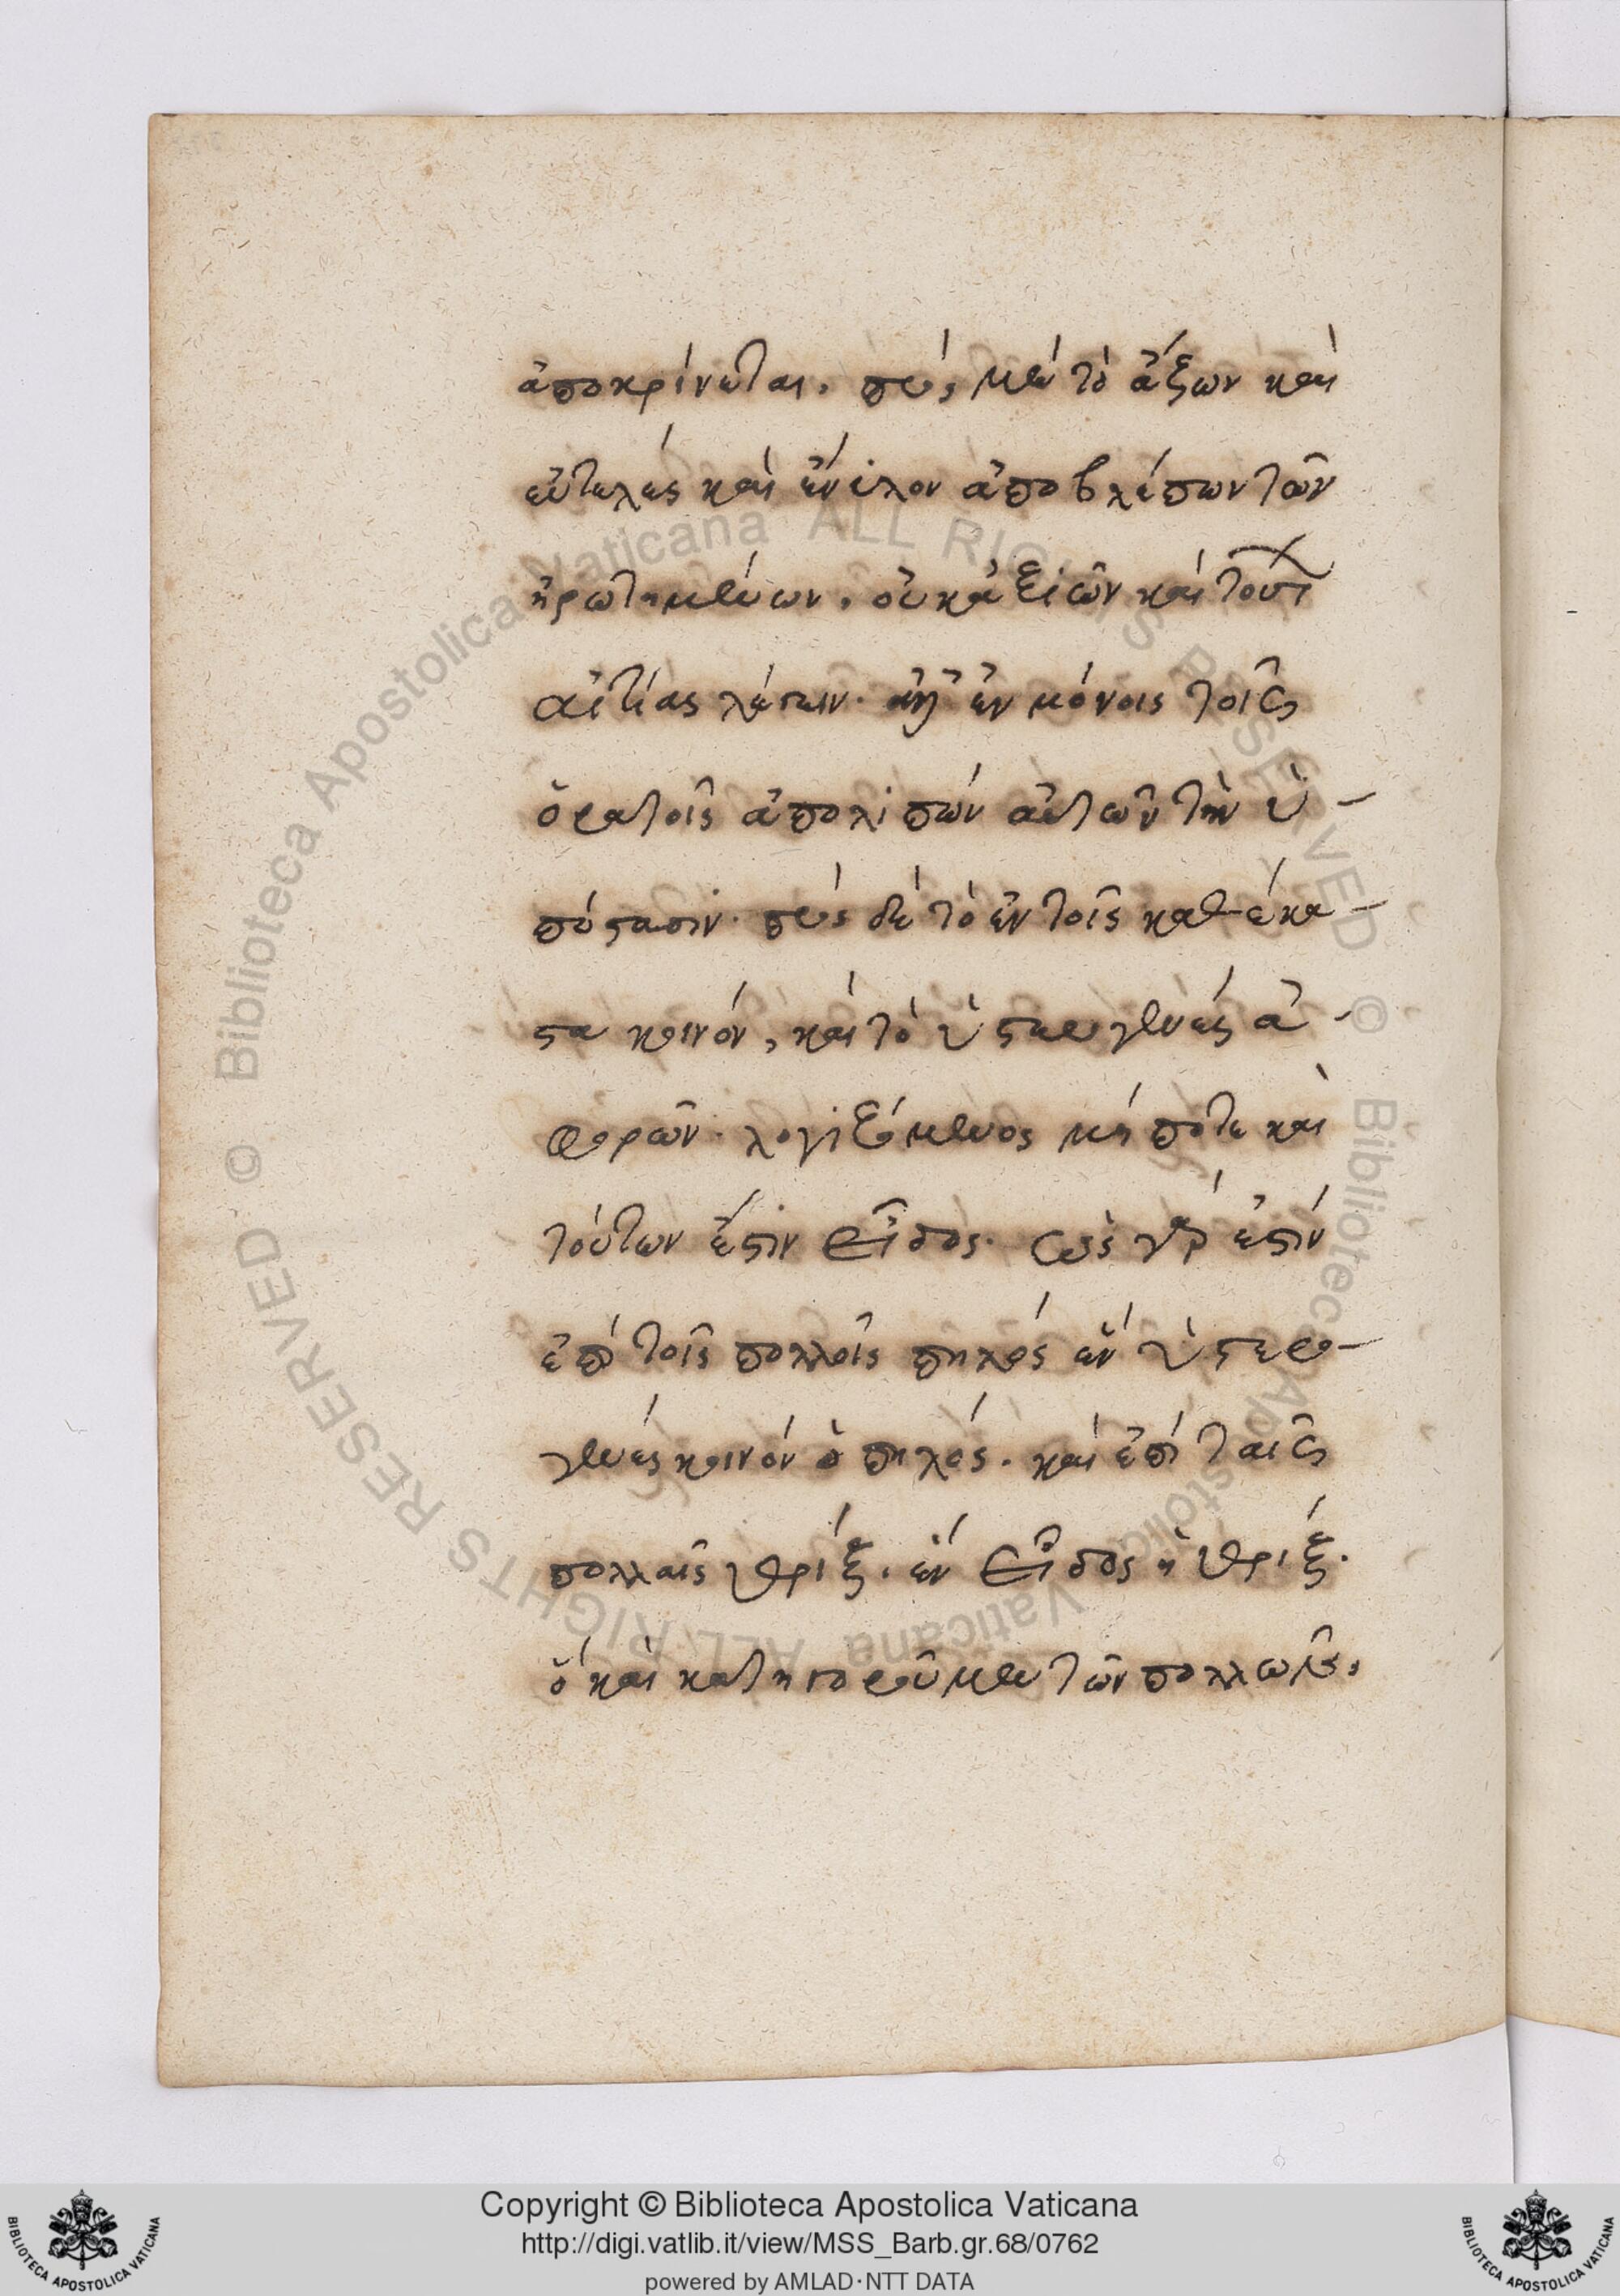 ἀποκρίνεται. πρὸς μὲν τὸ ἄξων καὶ
εὐτελὲς καὶ ἔνϋλον ἀποβλέπων τῶν
ἠρωτημένων. οὐκ ἀξιῶν καὶ τούτων
αἰτίας λέγειν. ἀλλ' ἐν μόνοις τοῖς
ὁρατοῖς ἀπολιπὼν αὐτῶν τὴν ὑ-
πόστασιν. πρὸς δὲ τὸ ἐν τοῖς καθέκα-
στα κοινόν, καὶ τὸ ὑπεργενὲς ἀ-
φορῶν. λογιζόμενος μή ποτε καὶ
τούτων ἔστιν εἶδος. ὡς γάρ ἐστιν
ἐπὶ τοῖς πολλοῖς πηλὸς ἓν ὑπερ-
γενὲς κοινὸν ὁ πηλός. καὶ ἐπὶ ταῖς
πολλαῖς θρίξ. ἓν εἶδος ἡ θρίξ.
ὃ καὶ κατηγοροῦμεν τῶν πολλῶν,
Copyright © Biblioteca Apostolica Vaticana
http://digi.vatlib.it/view/MSS_Barb.gr.68/0762
powered by AMLAD·NTT DATA
BIBLIOTECA APOSTOLICA VATICANA
BIBLIOTECA APOSTOLICA VATICANA
© Biblioteca Apostolica Vaticana ALL RIGHTS RESERVED
© Biblioteca Apostolica Vaticana ALL RIGHTS RESERVED